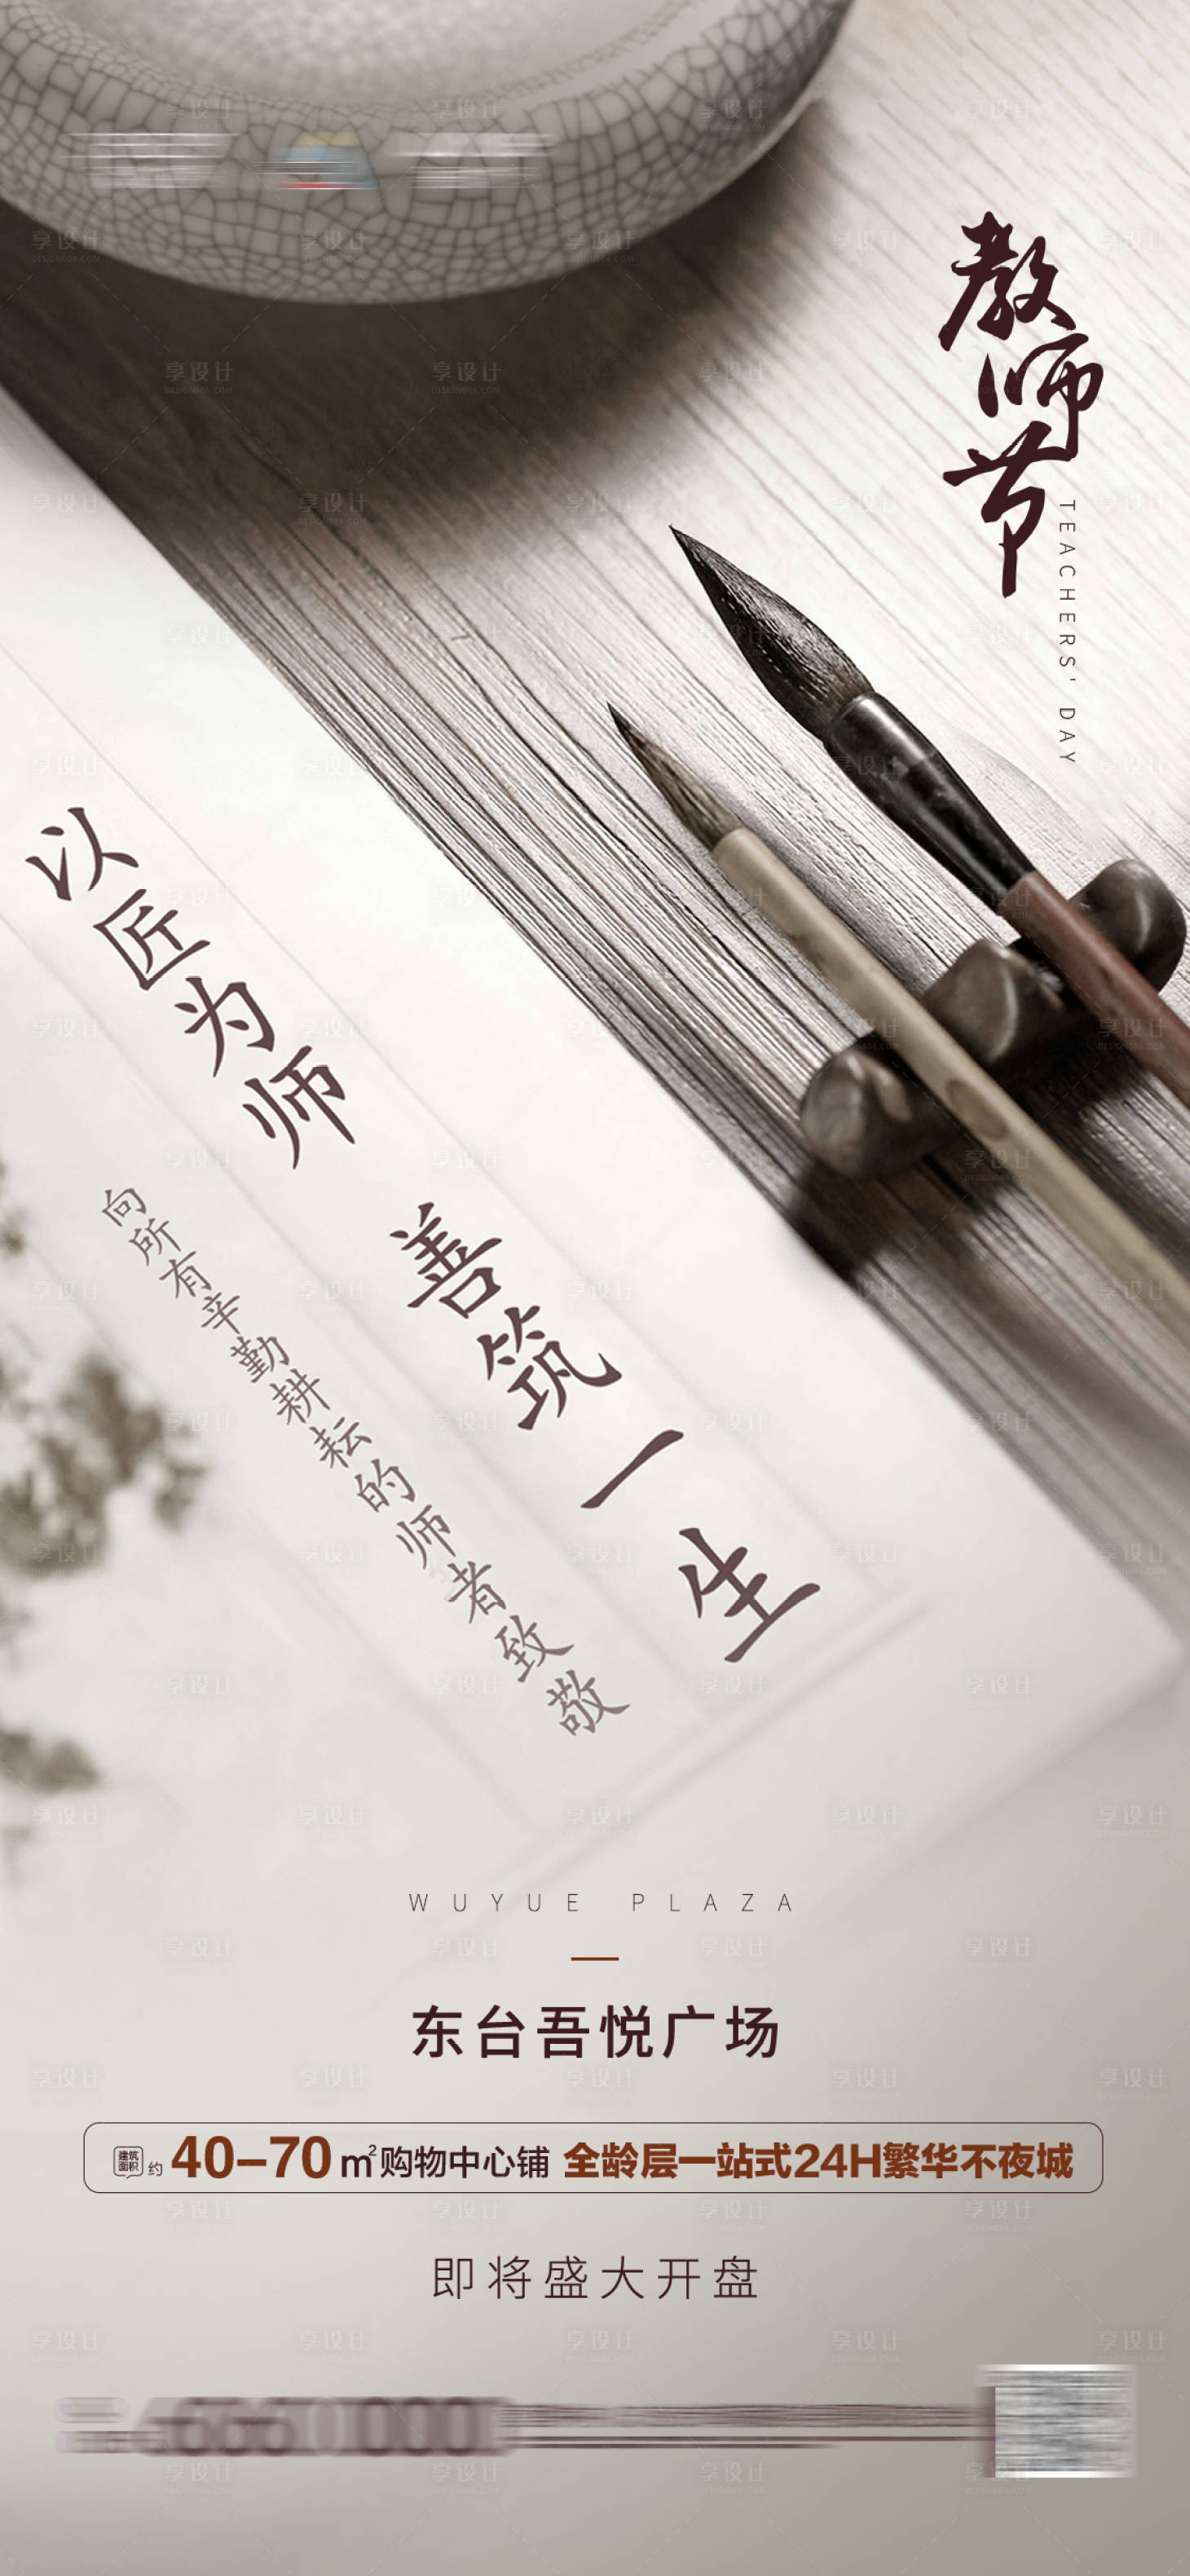 教师节
TEACHERS' DAY
以匠为师 善筑一生
向所有辛勤耕耘的师者致敬
WUYUE PLAZA
东台吾悦广场
建筑面积约40-70㎡购物中心铺 全龄层一站式24H繁华不夜城
即将盛大开盘
享设计
DESIGN006.COM